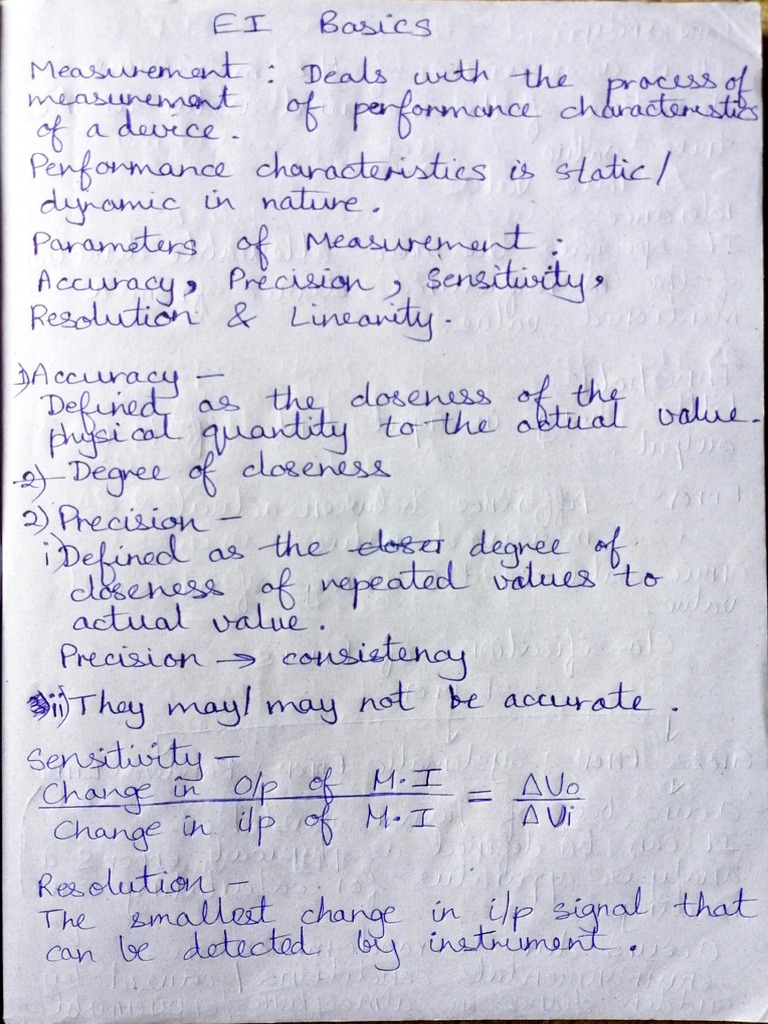 EI Basics
Measurement : Deals with the process of
measurement of performance characteristics
of a device.
Performance characteristics is static/
dynamic in nature.
Parameters of Measurement :
Accuracy, Precision, Sensitivity,
Resolution & Linearity.
1) Accuracy –
Defined as the closeness of the
physical quantity to the actual value.
2) Degree of closeness
2) Precision –
i) Defined as the closer degree of
closeness of repeated values to
actual value.
Precision → consistency
ii) They may/may not be accurate.
Sensitivity –
Change in O/p of M.I = ΔVo
Change in i/p of M.I ΔVi
Resolution –
The smallest change in i/p signal that
can be detected by instrument.